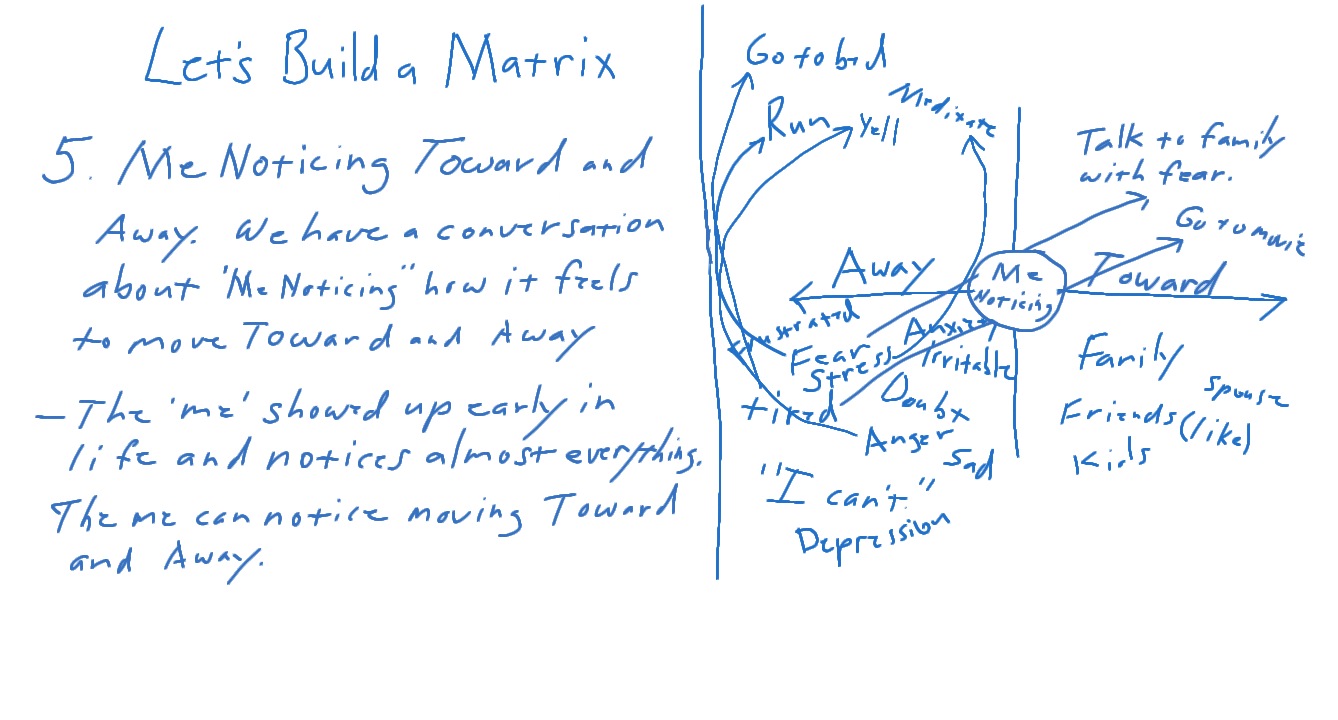 Let's Build a Matrix
5. Me Noticing Toward and
Away. We have a conversation
about 'Me Noticing" how it feels
to move Toward and Away
- The 'me' showed up early in
life and notices almost everything.
The me can notice moving Toward
and Away.
Go to bed
Run
Yell
Meditate
Talk to family
with fear.
Go to movie
Away
Me
Noticing
Toward
Frustrated
Fear
Anxiety
Stress
Irritable
tired
Doubt
Anger
Sad
"I can't"
Depression
Family
Spouse
Friends (like)
Kids